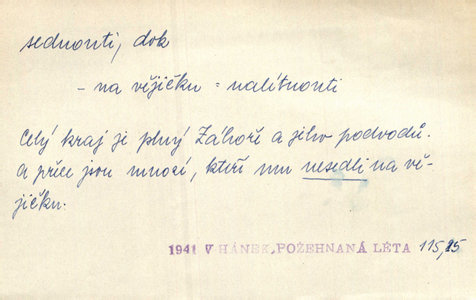 sednouti, dok
- na vějičku = nalítnouti
Celý kraj je plný Záhoří a jeho podvodů.
a přece jsou mnozí, kteří mu nesedli na vě-
jičku.
1941 V HÁNEK, POŽEHNANÁ LÉTA 115,25